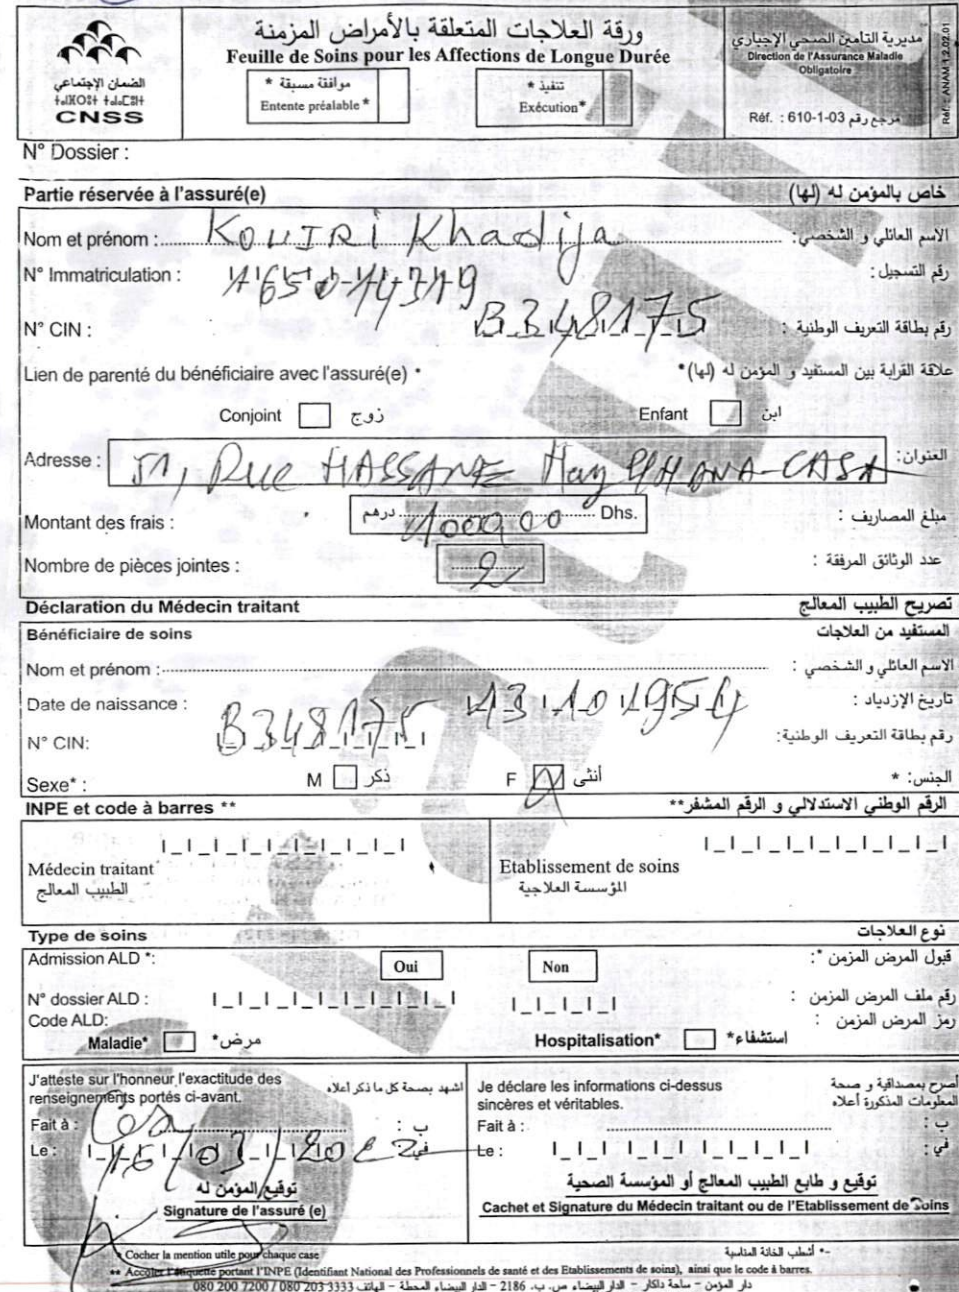 ورقة العلاجات المتعلقة بالأمراض المزمنة
Feuille de Soins pour les Affections de Longue Durée
الضمان الإجتماعي
CNSS
موافقة مسبقة *
Entente préalable *
تنفيذ *
Exécution*
مديرية التامين الصحي الإجباري
Direction de l'Assurance Maladie
Obligatoire
Réf. : 610-1-03 مرجع رقم
Réf. : ANAM 1.2.02.01
N° Dossier :
Partie réservée à l'assuré(e) خاص بالمؤمن له (لها)
Nom et prénom : KOUIRI Khadija الأسم العائلي و الشخصي:
N° Immatriculation : رقم التسجيل:
N° CIN : B348175 رقم بطاقة التعريف الوطنية :
Lien de parenté du bénéficiaire avec l'assuré(e) * علاقة القرابة بين المستفيد و المؤمن له (لها)*
Conjoint زوج Enfant ابن
Adresse : 51, Rue HASSANE Hay CASA العنوان:
Montant des frais : درهم Dhs. مبلغ المصاريف :
Nombre de pièces jointes : 2 عدد الوثائق المرفقة :
Déclaration du Médecin traitant تصريح الطبيب المعالج
Bénéficiaire de soins المستفيد من العلاجات
Nom et prénom : الاسم العائلي و الشخصي :
Date de naissance : 13 10 1954 تاريخ الإزدياد :
N° CIN: B348175 رقم بطاقة التعريف الوطنية:
Sexe* : M ذكر F أنثى الجنس: *
INPE et code à barres ** الرقم الوطني الاستدلالي و الرقم المشفر**
Médecin traitant
الطبيب المعالج
Etablissement de soins
المؤسسة العلاجية
Type de soins نوع العلاجات
Admission ALD *: Oui Non قبول المرض المزمن *:
N° dossier ALD : رقم ملف المرض المزمن :
Code ALD: رمز المرض المزمن :
Maladie* مرض* Hospitalisation* استشفاء*
J'atteste sur l'honneur l'exactitude des
renseignements portés ci-avant.
اشهد بصحة كل ما ذكر اعلاه
Fait à : ب :
Le : 16/03/202 في:
توقيع المؤمن له
Signature de l'assuré (e)
Je déclare les informations ci-dessus
sincères et véritables.
أصرح بمصداقية و صحة
المعلومات المذكورة أعلاه
Fait à : ب :
Le : في:
توقيع و طابع الطبيب المعالج أو المؤسسة الصحية
Cachet et Signature du Médecin traitant ou de l'Etablissement de Soins
* Cocher la mention utile pour chaque case
*- أشطب الخانة المناسبة
** Accoler l'étiquette portant l'INPE (Identifiant National des Professionnels de santé et des Etablissements de soins), ainsi que le code à barres.
دار المؤمن - ساحة داكار - الدار البيضاء ص. ب. 2186 - الدار البيضاء المحطة - الهاتف 080 203 3333 / 080 200 7200